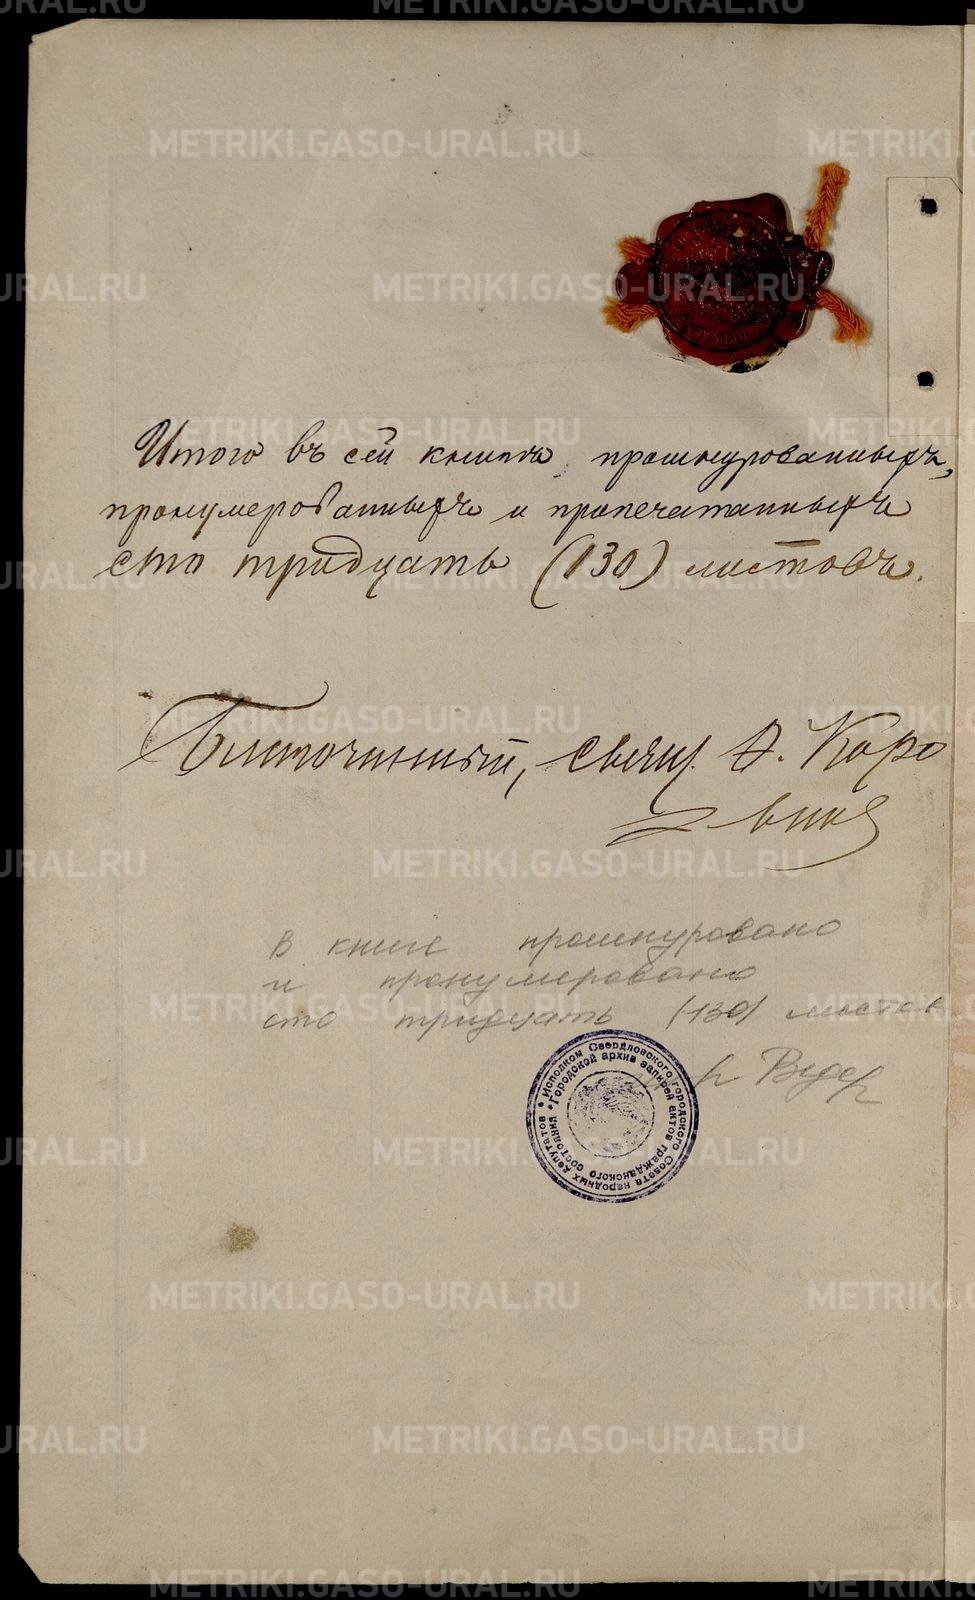 Итого въ сей книгѣ прошнурованныхъ,
пронумерованныхъ и пропечатанныхъ
сто тридцать (130) листовъ.
Благочинный, свящ. А. Коро
вин
В книге прошнуровано
и пронумеровано
сто тридцать (130) листов
Исполком Свердловского городского Совета народных депутатов
Городской архив записей актов гражданского состояния
METRIKI.GASO-URAL.RU